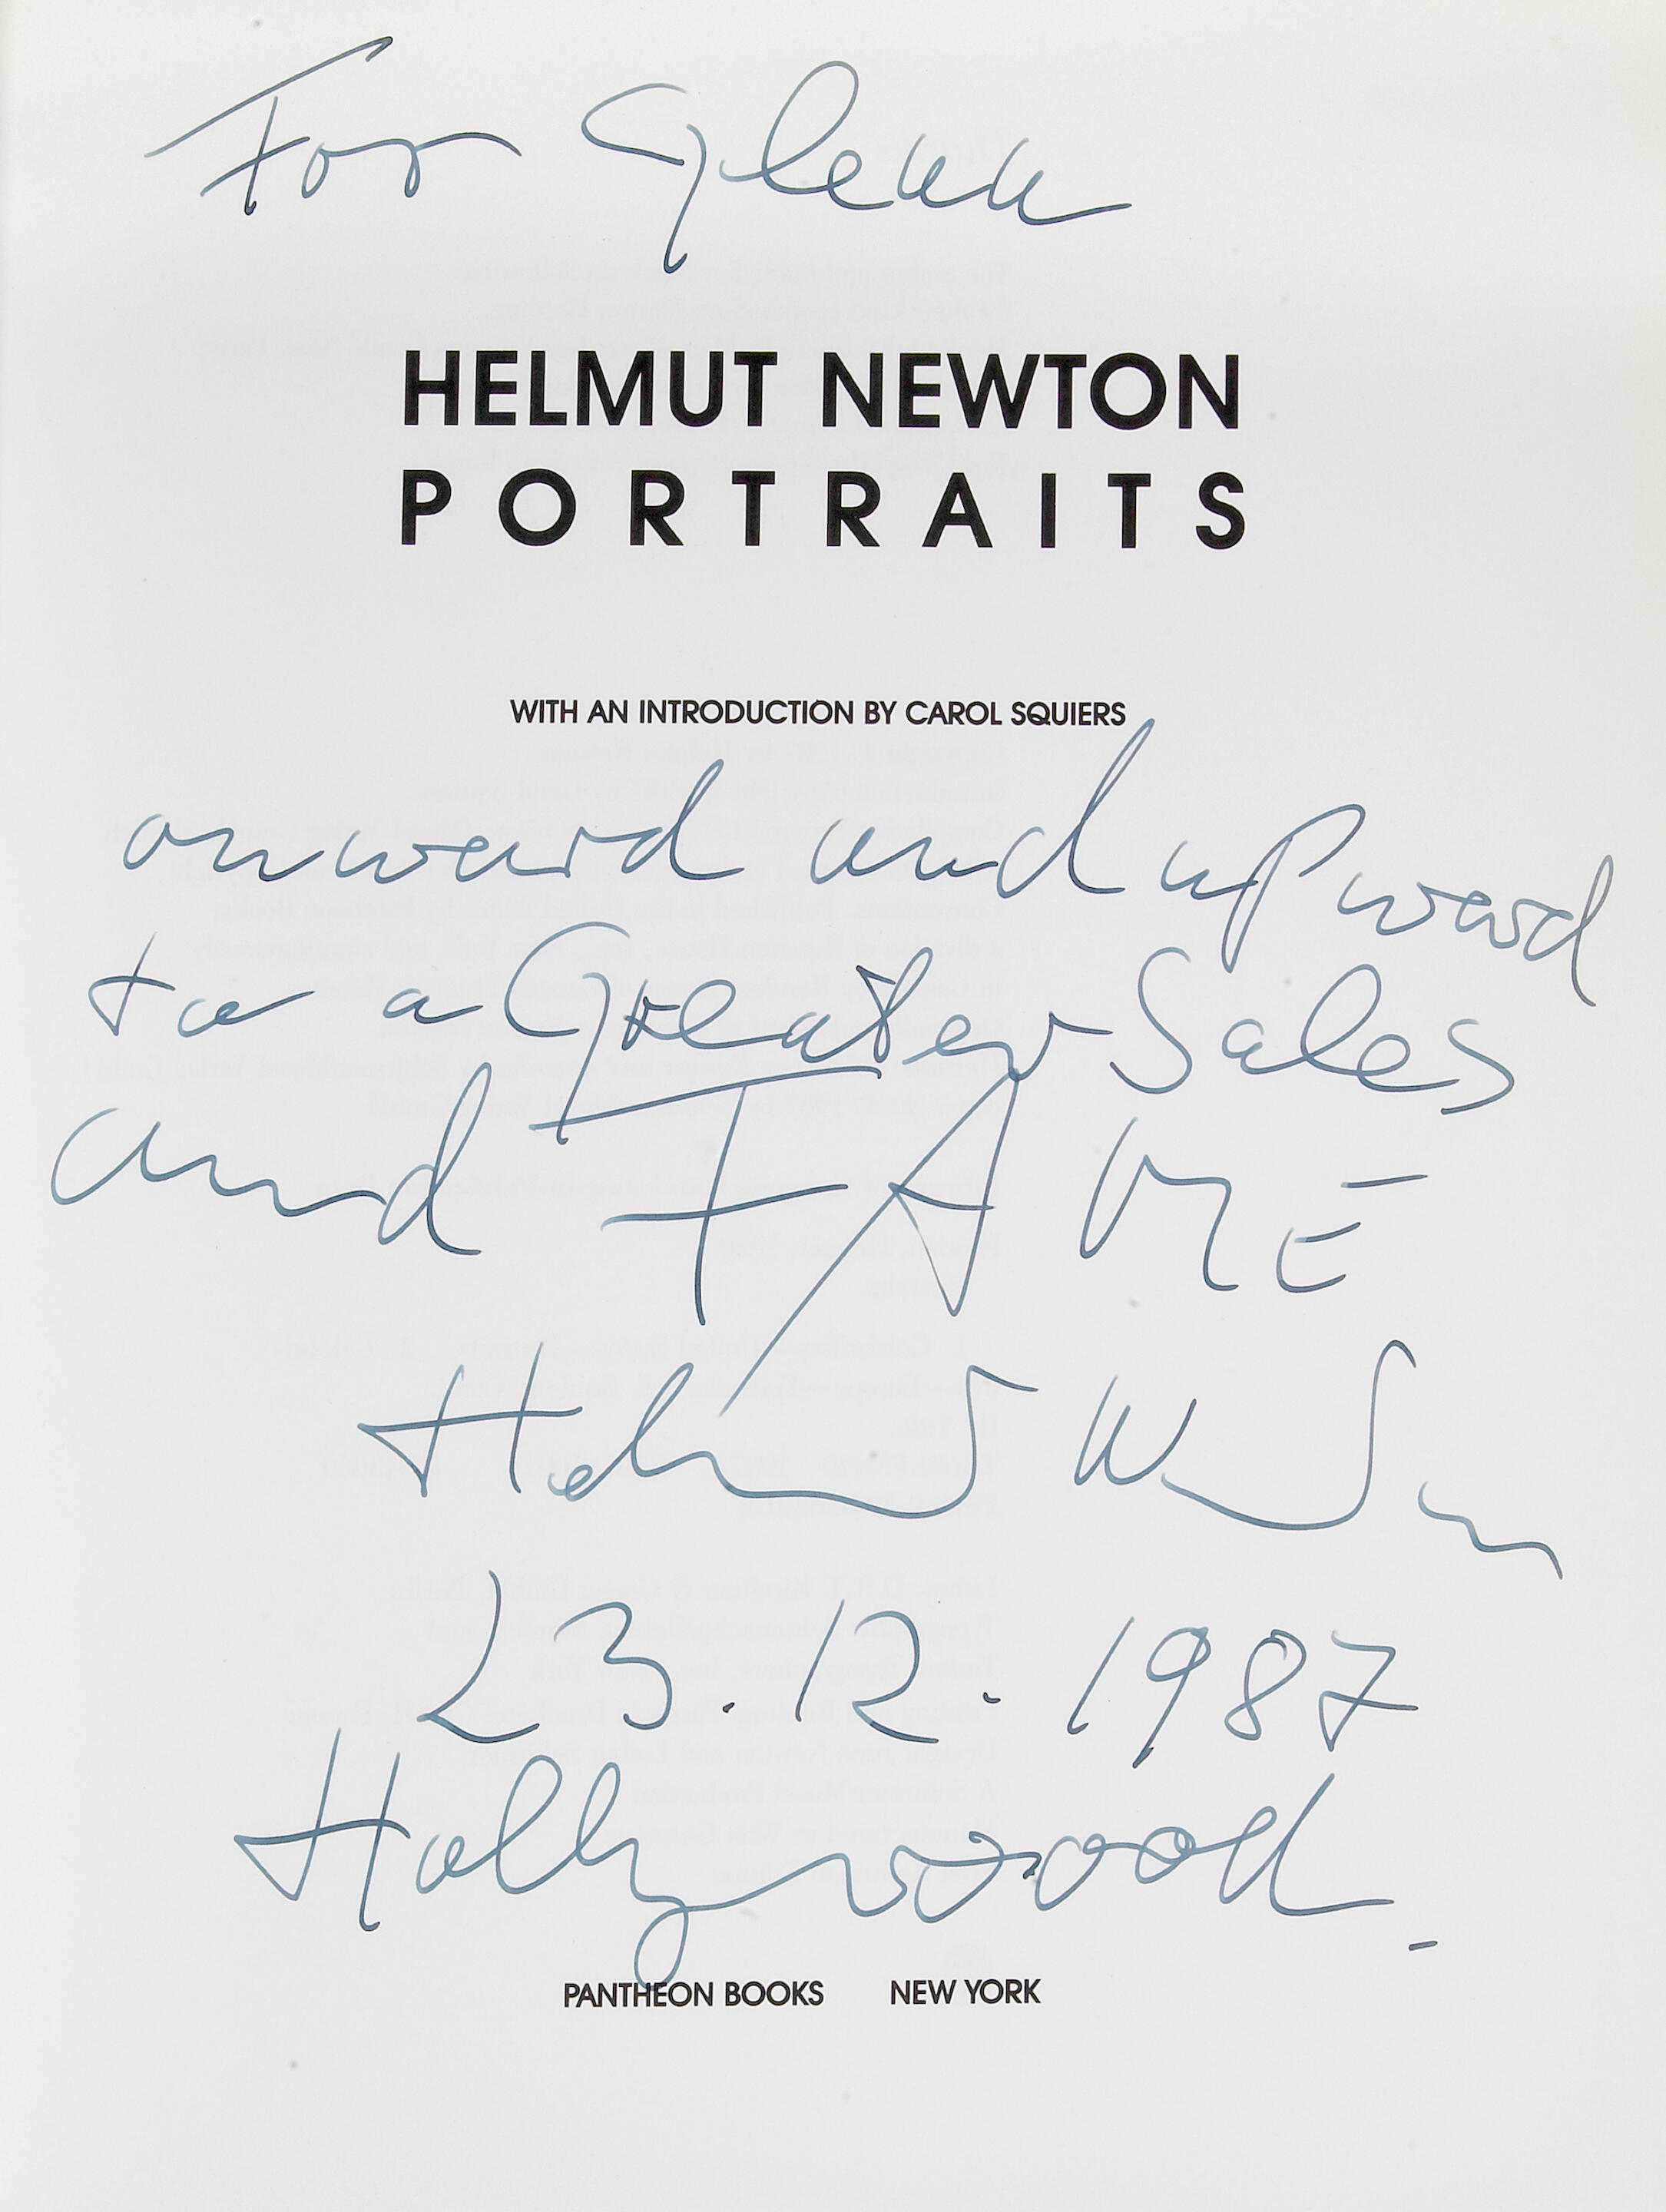 For Glenn
HELMUT NEWTON
PORTRAITS
WITH AN INTRODUCTION BY CAROL SQUIERS
onward and upward
to a Greater Sales
and FAME
Helmut Newton
23.12.1987
Hollywood.
PANTHEON BOOKS NEW YORK